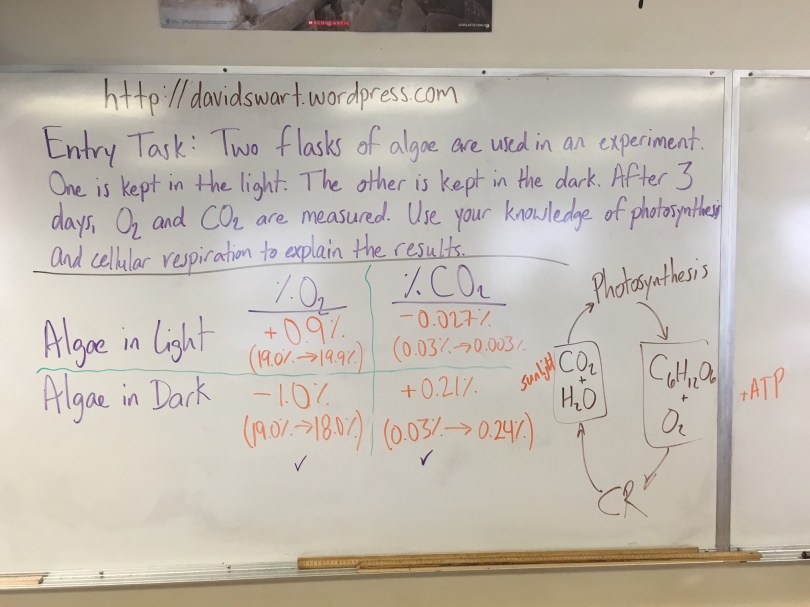 http://davidswart.wordpress.com
Entry Task: Two flasks of algae are used in an experiment.
One is kept in the light. The other is kept in the dark. After 3
days, O₂ and CO₂ are measured. Use your knowledge of photosynthesis
and cellular respiration to explain the results.
% O₂ % CO₂
Algae in Light +0.9% -0.027%
(19.0%→19.9%) (0.03%→0.003%
Algae in Dark -1.0% +0.21%
(19.0%→18.0%) (0.03%→0.24%)
✓ ✓
Photosynthesis
sunlight
CO₂
+
H₂O
C₆H₁₂O₆
+
O₂
+ATP
CR